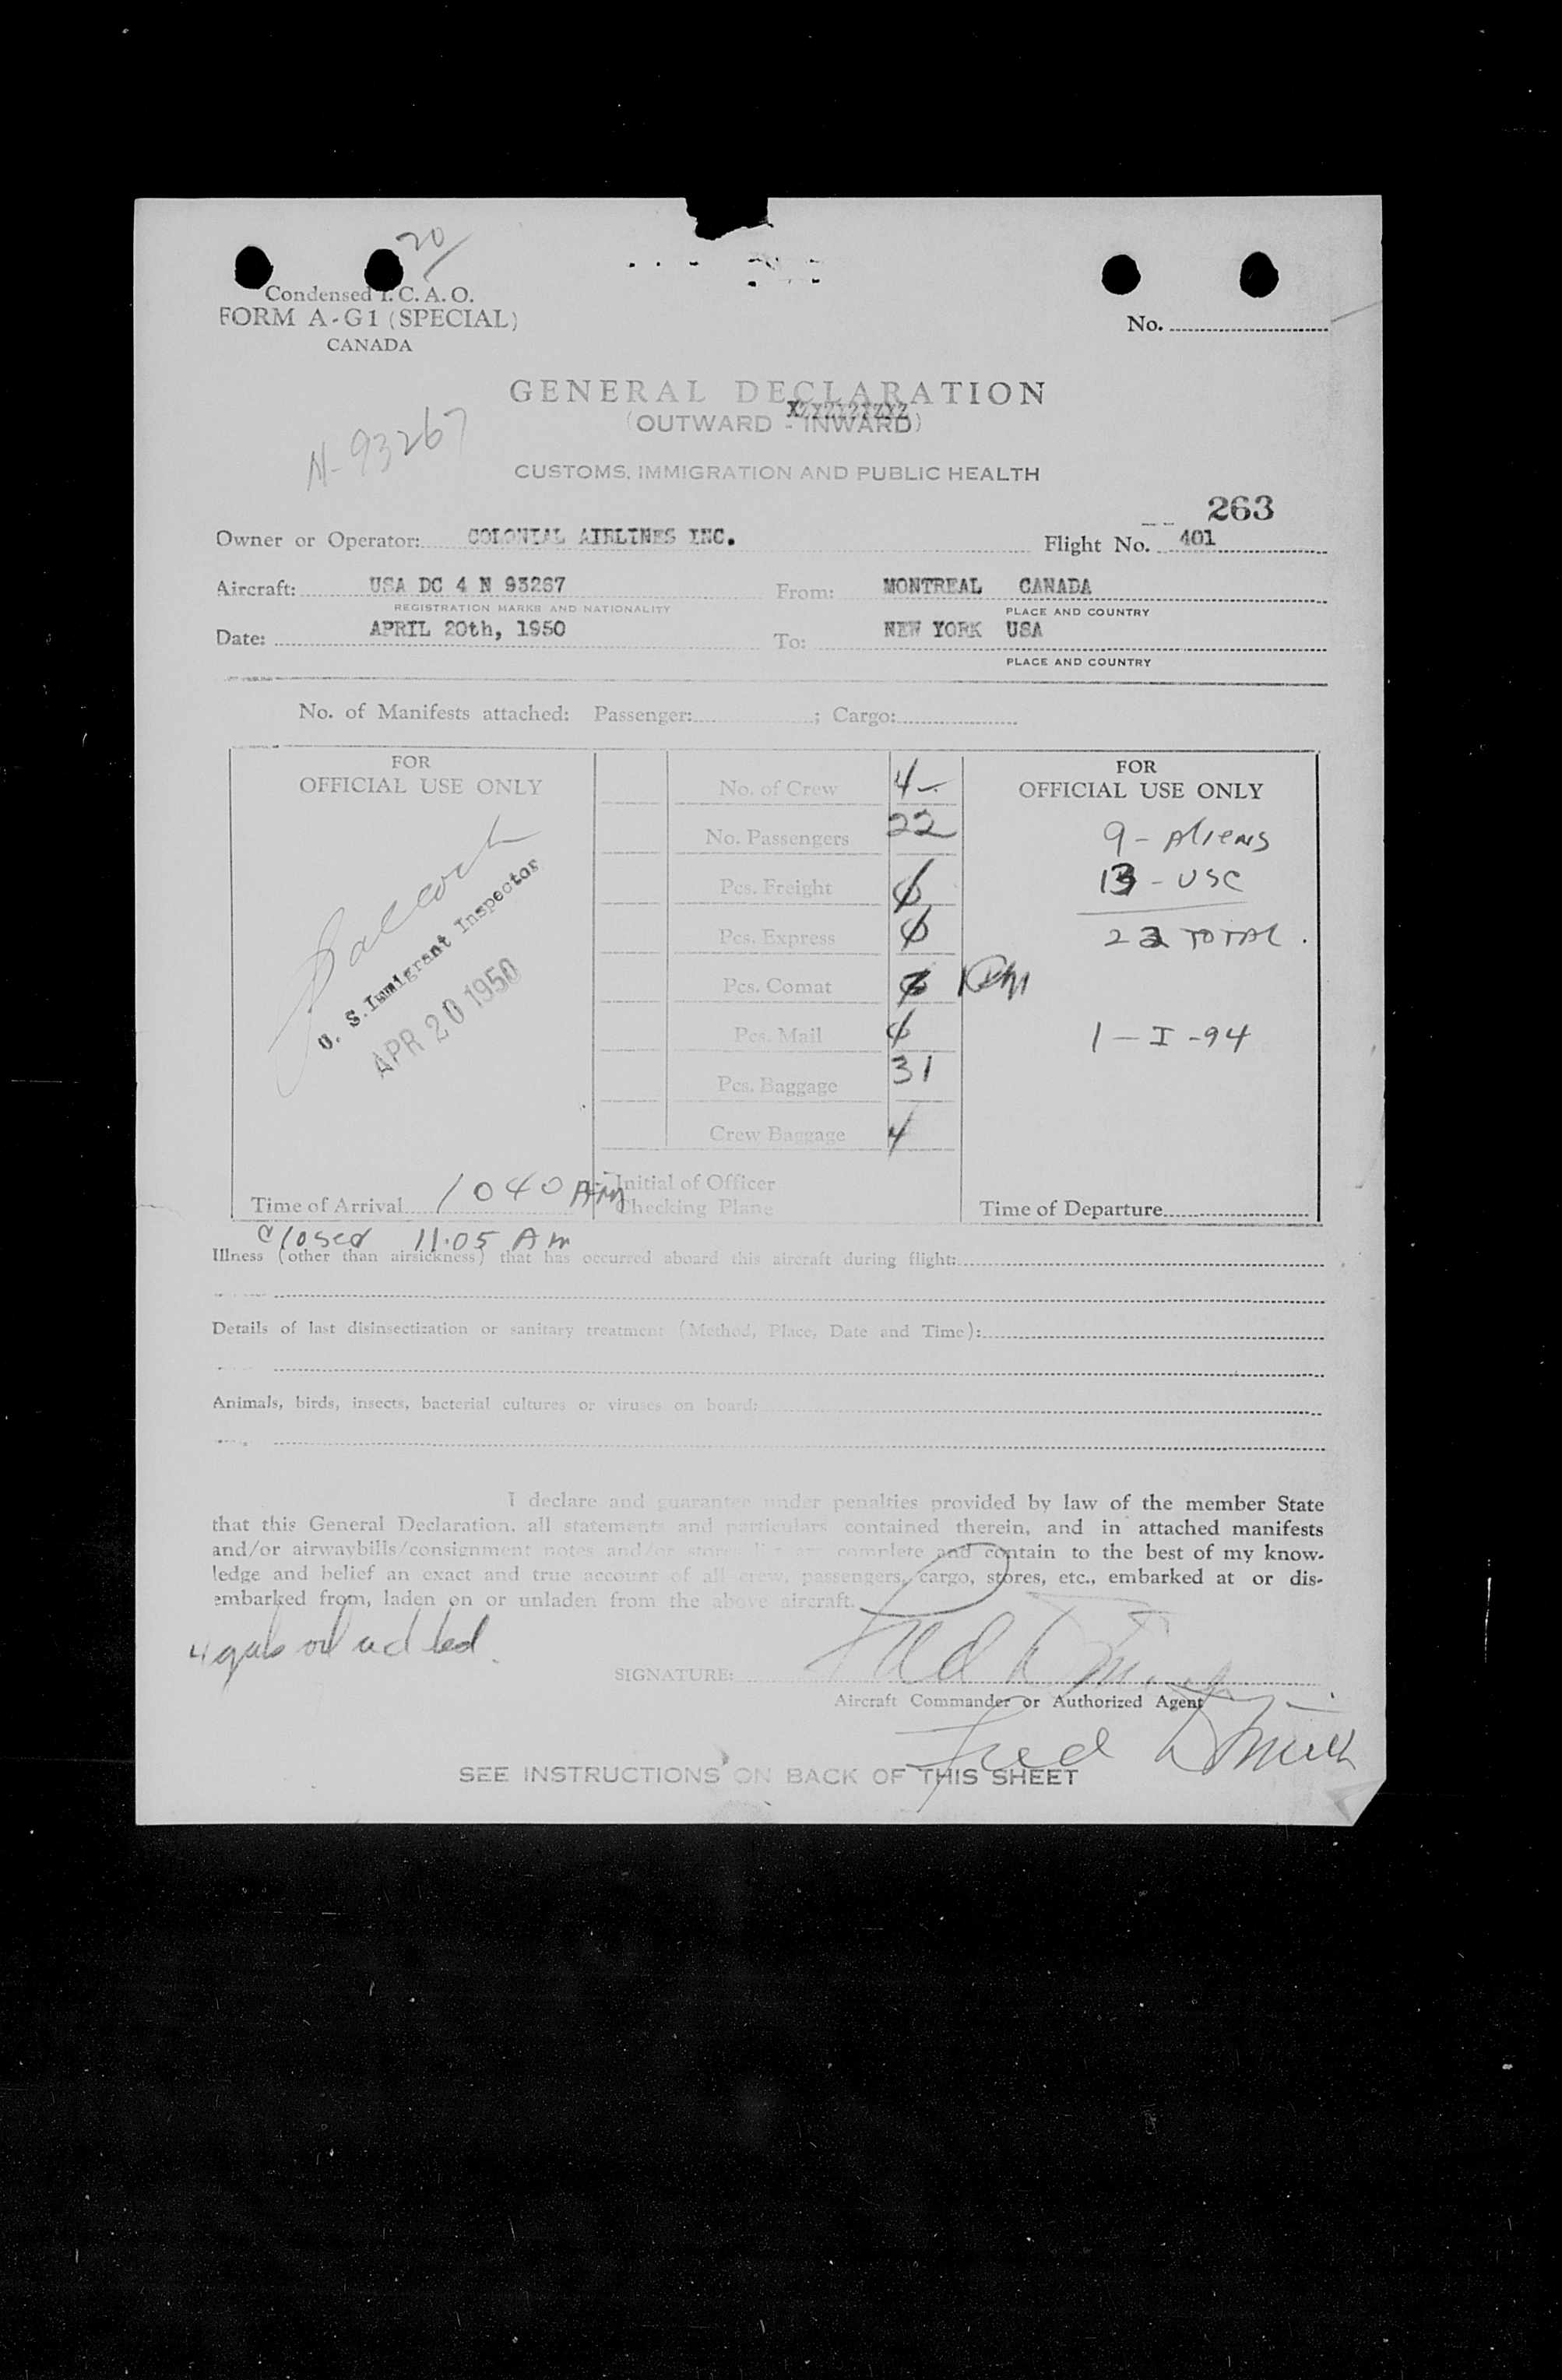 20/
Condensed I. C. A. O.
FORM A-G1 (SPECIAL)
CANADA
No.
GENERAL DECLARATION
(OUTWARD - INWARD)
N-93267
CUSTOMS, IMMIGRATION AND PUBLIC HEALTH
263
Owner or Operator: COLONIAL AIRLINES INC. Flight No. 401
Aircraft: USA DC 4 N 93267 From: MONTREAL CANADA
REGISTRATION MARKS AND NATIONALITY PLACE AND COUNTRY
Date: APRIL 20th, 1950 To: NEW YORK USA
PLACE AND COUNTRY
No. of Manifests attached: Passenger: ; Cargo:
FOR
OFFICIAL USE ONLY
U. S. Immigrant Inspector
APR 20 1950
Time of Arrival 1040 AM
Closed 11.05 AM
No. of Crew 4-
No. Passengers 22
Pcs. Freight 0
Pcs. Express 0
Pcs. Comat
Pcs. Mail 0
Pcs. Baggage 31
Crew Baggage 4
Initial of Officer
Checking Plane
FOR
OFFICIAL USE ONLY
9 - Aliens
13 - USC
22 TOTAL.
1 - I - 94
Time of Departure
Illness (other than airsickness) that has occurred aboard this aircraft during flight:
Details of last disinsectization or sanitary treatment (Method, Place, Date and Time):
Animals, birds, insects, bacterial cultures or viruses on board:
I declare and guarantee under penalties provided by law of the member State
that this General Declaration, all statements and particulars contained therein, and in attached manifests
and/or airwaybills/consignment notes and/or stores list are complete and contain to the best of my know-
ledge and belief an exact and true account of all crew, passengers, cargo, stores, etc., embarked at or dis-
embarked from, laden on or unladen from the above aircraft.
4 gals oil added.
SIGNATURE:
Aircraft Commander or Authorized Agent
Fred D Smith
SEE INSTRUCTIONS ON BACK OF THIS SHEET